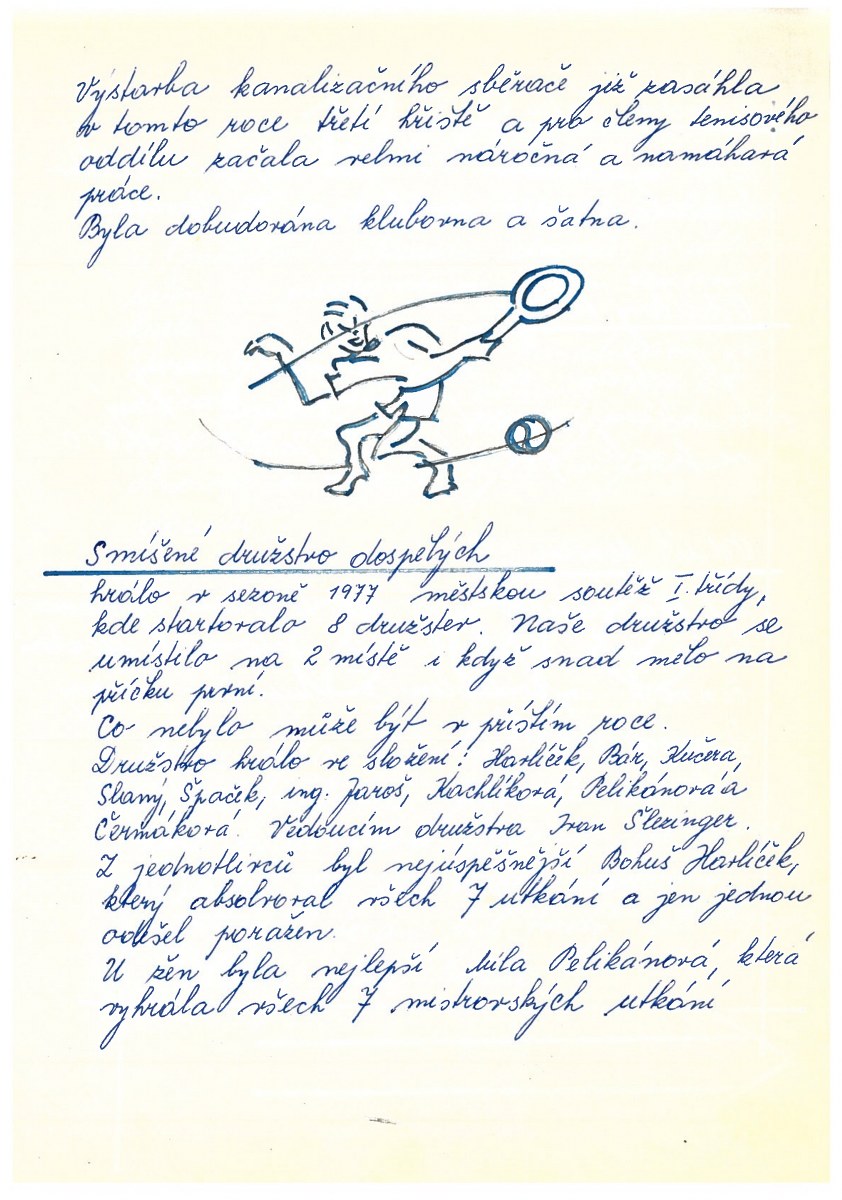 Výstavba kanalizačního sběrače již zasáhla
v tomto roce třetí hřiště a pro členy tenisového
oddílu začala velmi náročná a namáhavá
práce.
Byla dobudována klubovna a šatna.
Smíšené družstvo dospělých
hrálo v sezoně 1977 městskou soutěž I. třídy,
kde startovalo 8 družstev. Naše družstvo se
umístilo na 2 místě i když snad mělo na
příčku první.
Co nebylo může být v příštím roce.
Družstvo hrálo ve složení: Havlíček, Bár, Kučera,
Slaný, Špaček, ing. Jaroš, Kachlíková, Pelikánová a
Čermáková. Vedoucím družstva Ivan Šlezinger.
Z jednotlivců byl nejúspěšnější Bohuš Havlíček,
který absolvoval všech 7 utkání a jen jednou
odešel poražen.
U žen byla nejlepší Míla Pelikánová, která
vyhrála všech 7 mistrovských utkání